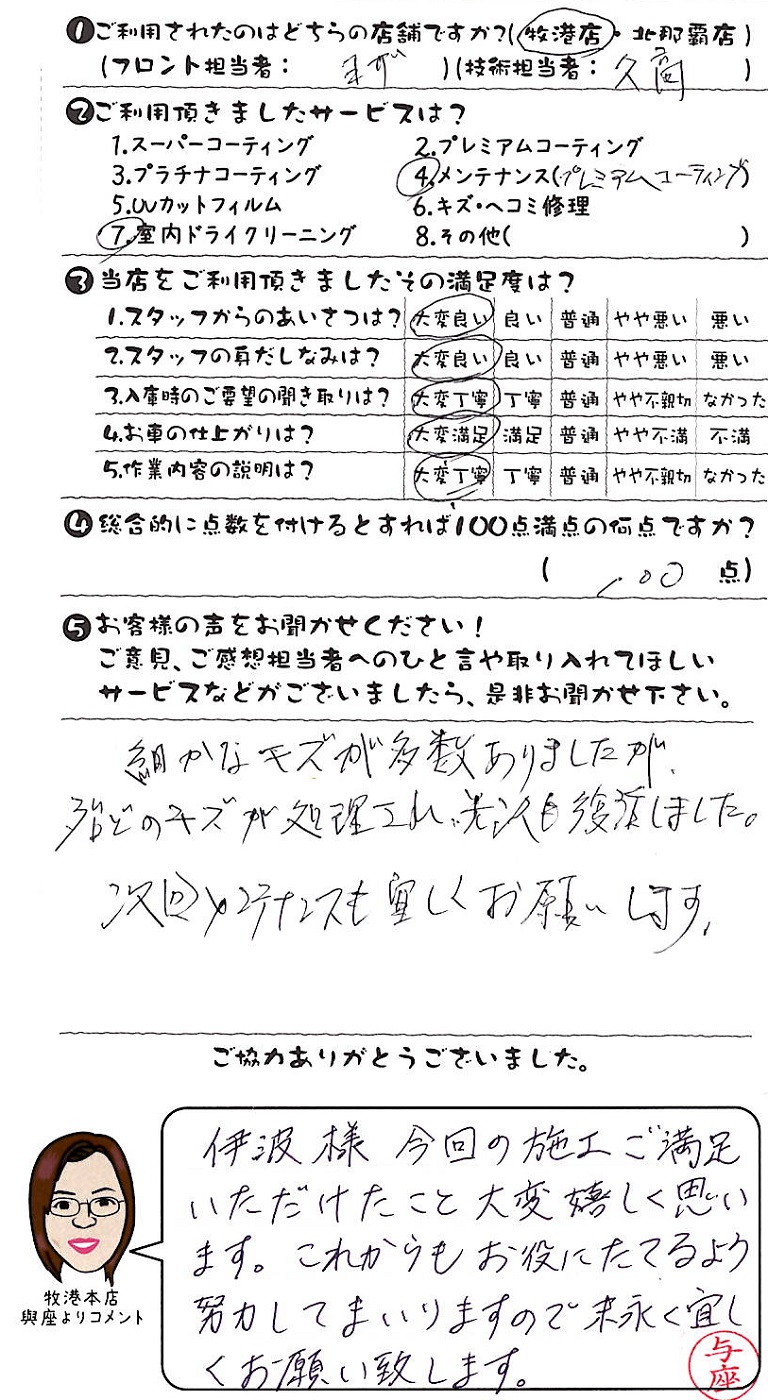 ❶ご利用されたのはどちらの店舗ですか?(牧港店・北那覇店)
(フロント担当者: )(技術担当者: 久高 )
❷ご利用頂きましたサービスは?
1.スーパーコーティング 2.プレミアムコーティング
3.プラチナコーティング 4.メンテナンス(プレミアムコーティング)
5.UVカットフィルム 6.キズ・ヘコミ修理
7.室内ドライクリーニング 8.その他( )
❸当店をご利用頂きましたその満足度は?
1.スタッフからのあいさつは? 大変良い 良い 普通 やや悪い 悪い
2.スタッフの身だしなみは? 大変良い 良い 普通 やや悪い 悪い
3.入庫時のご要望の聞き取りは? 大変丁寧 丁寧 普通 やや不親切 なかった
4.お車の仕上がりは? 大変満足 満足 普通 やや不満 不満
5.作業内容の説明は? 大変丁寧 丁寧 普通 やや不親切 なかった
❹総合的に点数を付けるとすれば100点満点の何点ですか?
( 100 点)
❺お客様の声をお聞かせください!
ご意見、ご感想担当者へのひと言や取り入れてほしい
サービスなどがございましたら、是非お聞かせ下さい。
細かなキズが多数ありましたが、
殆どのキズが処理され、光沢も復活しました。
次回メンテナンスも宜しくお願いします。
ご協力ありがとうございました。
伊波様 今回の施工ご満足
いただけたこと大変嬉しく思い
ます。これからもお役にたてるよう
努力してまいりますので末永く宜し
くお願い致します。
与座
牧港本店
與座よりコメント